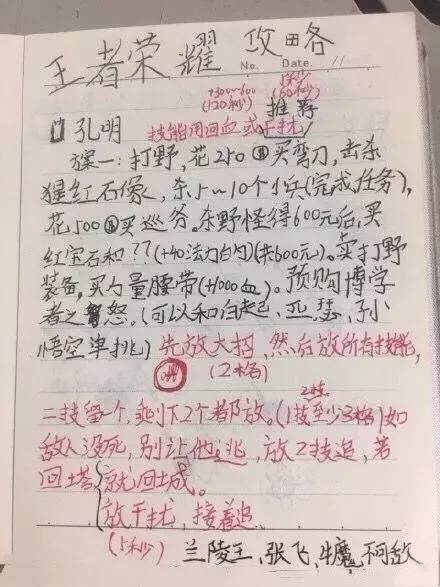 王者荣耀 攻略
No. Date. 11
+300~600 5秒
(120秒) (60秒)
推荐
孔明 技能用回血或干扰
方案一：打野，花250买弯刀，击杀
猩红石像，杀5～10个小兵(完成任务)，
花500买巡务。杀野怪得600元后，买
红宝石和??(+40法力白内)(共600元)。买打野
装备，买力量腰带(+1000血)。预购博学
者之怒。(可以和白起、亚瑟、孙
悟空单挑) 先放大招，然后放所有技能，
(2格)
二技留一个，剩下2个都放。(1技至少3格)如
2技
敌人没死，别让他逃，放2技追，若
回塔 就回城。
放干扰，接着追
(5秒) 兰陵王、张飞、牛魔、不可敌